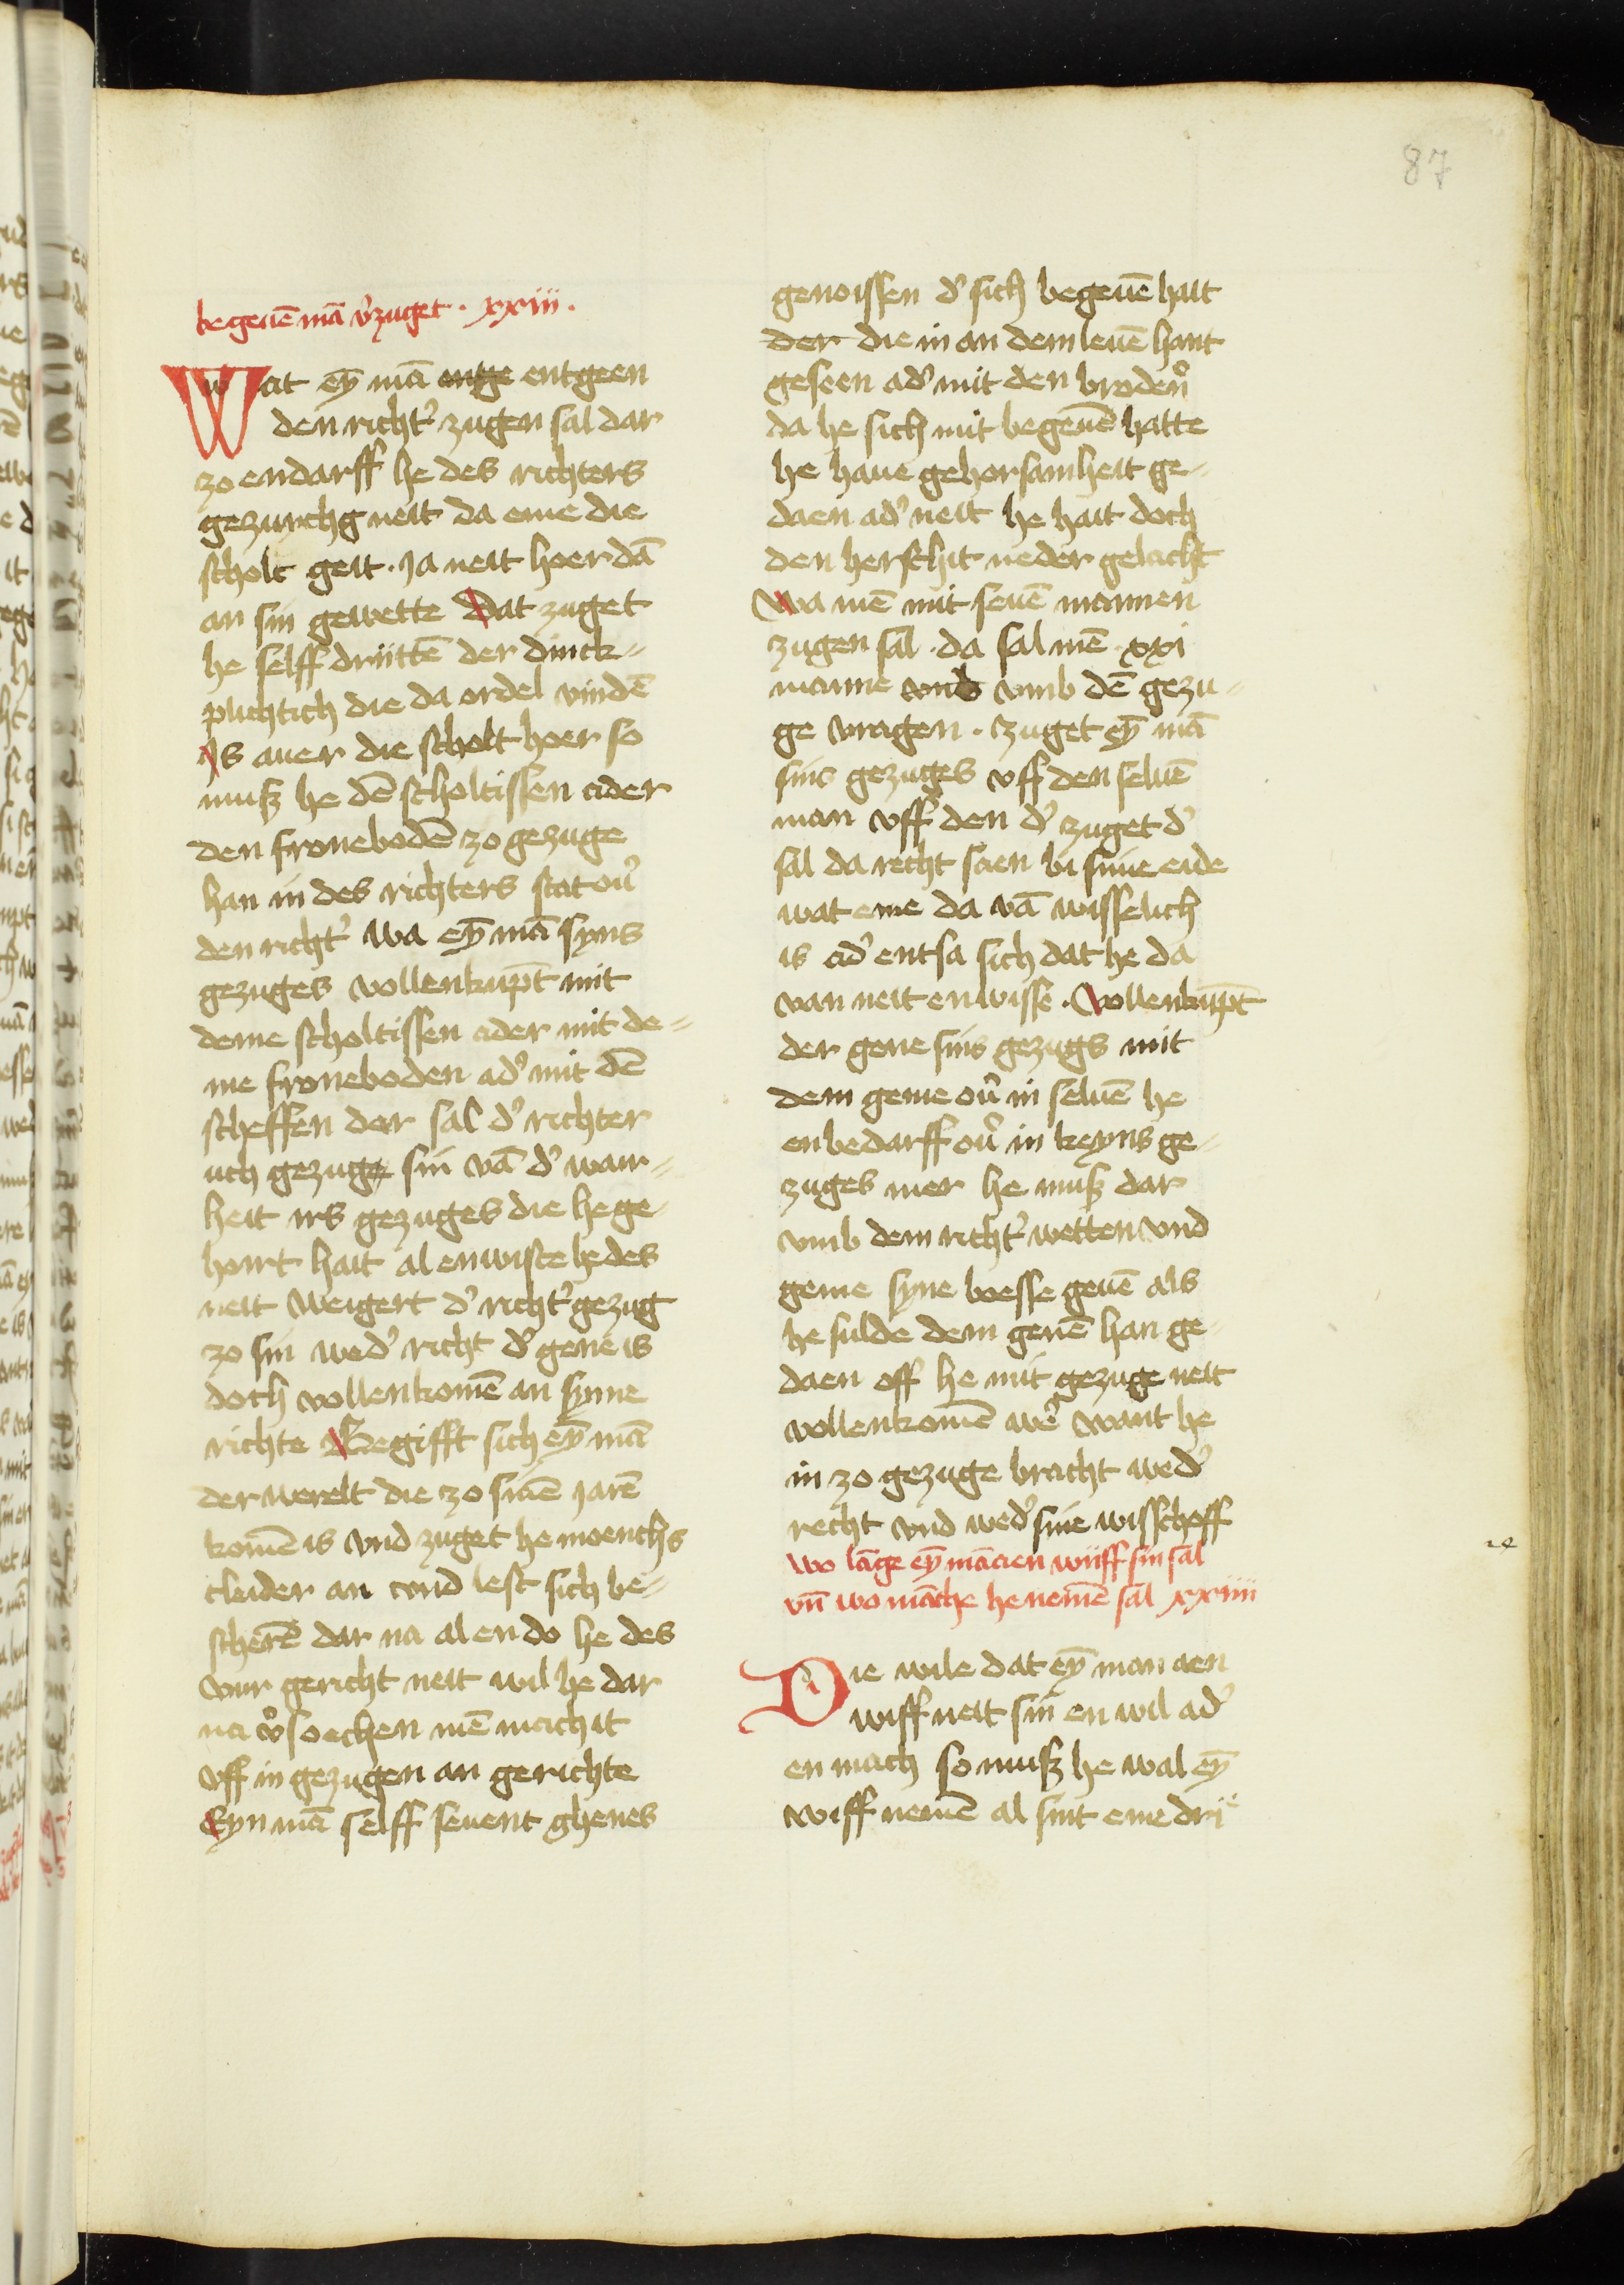 87
begeuē mā v̓zuget · xxiii ·
Wat ey̅ mā entge entgeen
den richt̓ zugen sal dar
zo endarff he des richters
gezurchg neit da eme die
scholt geit · ja neit hoer dā
an sin gewette Dat zuget
he selff druttē der dinck-
plichtich die da ordel vindē
Js auer die scholt hoer so
muß he dē scholtissen ader
den fronebodē zo gezuge
han in des richters stat ou̓
den richt̓ wa ey̅ mā syns
gezuges vollenkupt̄ mit
deme scholtissen ader mit de-
me froneboden ad̓ mit dē
scheffen der sal d̓ richter
uch gezuge sin vā d̓ wair-
heit irs gezuges die he ge-
hoirt hait al enwiste he des
neit Weigert d̓ richt̓ gezug
zo sin wed̓ richt d̓ gene is
doch vollenkomē an syme
richte Begifft sich ey̅ mā
der werelt die zo sinē jarē
komē is vnd zuget he moenchs
cleider an vnd lest sich be-
scherē dar na al en do he des
vur gericht neit wil he dar
na v̓soechen mē mach it
vff in gezugen an gerichte
Eyn mā selff seuent ghenes
genoissen d̓ sich begeuē hait
der die in an dem leuē hant
geseen ad̓ mit den broden̓
da he sich mit begeuē hatte
he haue gehorsamheit ge-
daen ad̓ neit he hait doch
den herschit neder gelacht
Wa mē mit seuē mannen
zugen sal · da sal mē · xxi
manne vnb vmb dē gezu-
ge vragen · Zuget ey̅ mā
sins gezuges vff den seluē
man vff den d̓ zuget d̓
sal da recht saen bi sime eide
wat eme da vā wisselich
is ad̓ entsa sich dat he da
van neit enwisse · Vollenkupt̄
der gene sins gezugs mit
dem geme ou̓ in seluē he
enbedarff ou̓ in keyns ge-
zuges mer he muß dar
vmb dem richt̓ wetten vnd
geme syne boesse geuē als
he sulde dem genē han ge-
daen off he mit gezuge neit
vollenkomē we̓ want he
in zo gezuge bracht wed̓
recht vnd wed̓ sine wisschoff
wo lāge ey̅ mā aen wiiff sin sal
vn̄ wo māche he nemē sal xxiiii
Die wile dat ey̅ man aen
wiff neit sin en wil ad̓
en mach so muß he wal ey̅
wiff nemē al sint eme dri